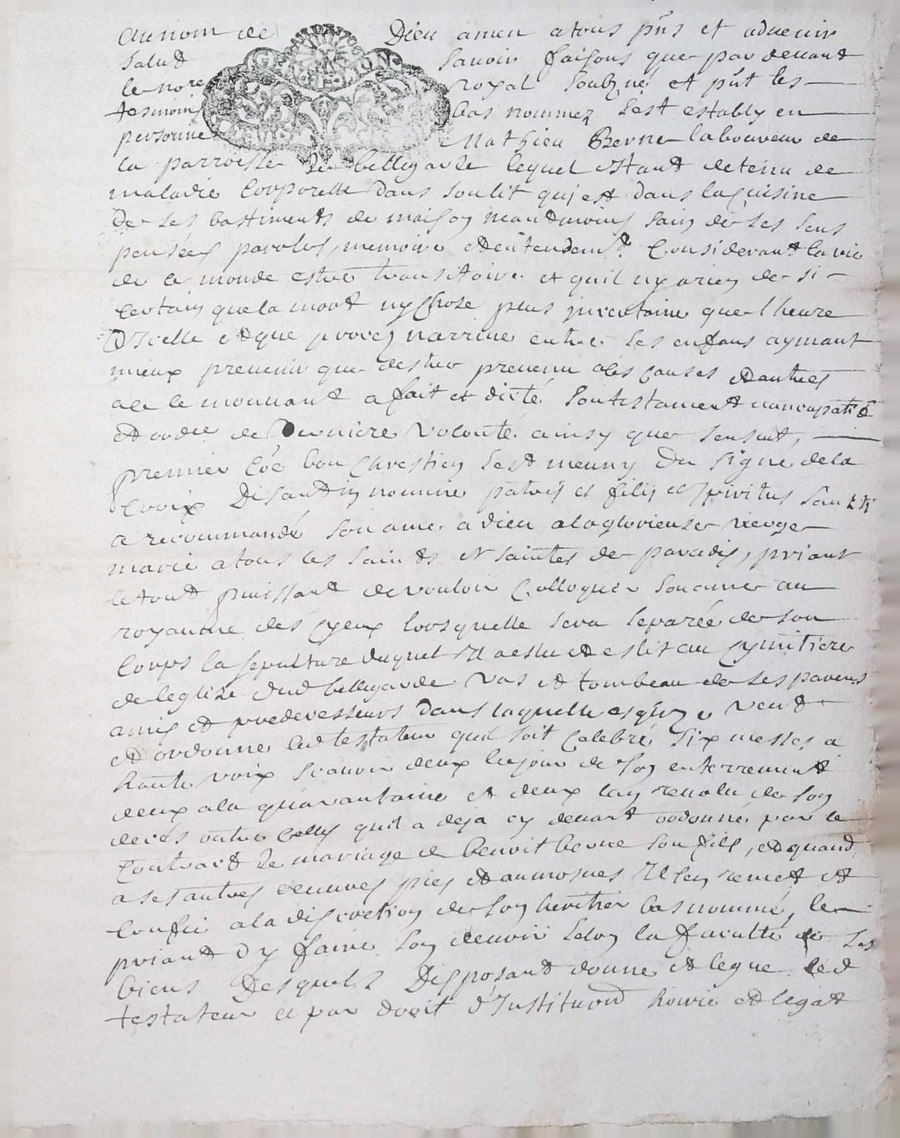 Au nom de Dieu amen a tous pnts et advenir
Salut Scavoir faisons que par devant
le no.re royal soubzné et pnt les
tesmoins bas nommez s'est estably en
personne Mathieu Berne laboureur de
la parroisse de bellegarde lequel estant detenu de
maladie corporelle dans son lit qui est dans la cuisine
de ses bastiments de maison neantmoins sain de ses sens
pensées paroles, memoire et entendemt. Considerant la vie
de ce monde estre transitoire et quil ny a rien de si
certain que la mort ny chose plus incertaine que l heure
D'icelle et que proces narrive entre ses enfans aymant
mieux prevenir que destre prevenu a ces causes et autres
a ce le mouvant a fait et dicté son testament nuncupatif
et ordre de Derniere volonté ainsy que sensuit,
premier coe bon Chrestien s'est meuny Du signe de la
Croix Disant in nomine patris et filii et spiritus sancti
a recommandé son ame a dieu a la glorieuse vierge
marie a tous les saints et saintes de paradis, priant
le tout puissant de vouloir colloquer son ame au
royaume des cyeux lorsquelle sera separée de son
Corps la sepulture duquel Il a eslu et eslit au cymitiere
de leglize dud bellegarde vas et tombeau de ses parens
amis et predecesseurs dans laquelle esglize veut
et ordonne led testateur quil soit celebré six messes a
haute voix scavoir deux le jour de son enterrement
deux a la quarantaine et deux lan revolu de son
deces outre celles quil a deja cy devant ordonné par le
Contract de mariage de benoit berne son fils, et quand
a ses autres oeuvres pies et aumosnes Il sen remet et
confie a la discretion de son heritier bas nommé, le
priant d'y faire son devoir selon la faculté de ses
biens Desquels Disposant donne et legue led
testateur et par droit d'Institution hoirie et legat